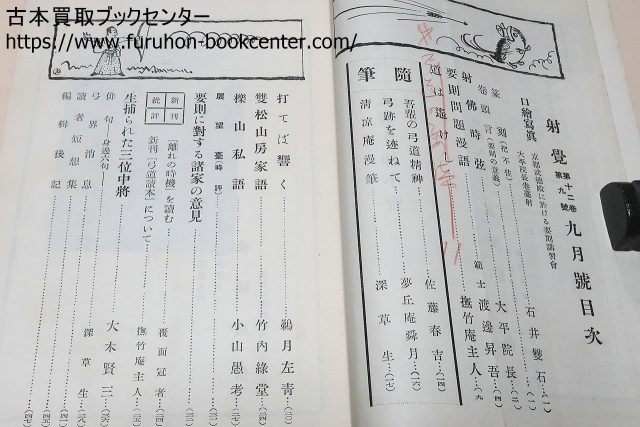 古本買取ブックセンター
https://www.furuhon-bookcenter.com/
射覺 第十二卷 第九號 九月號目次
口繪寫眞
京都武德殿に於ける要則講習會
大平院長卷藁射
篆刻(祀不住)……石井雙石…(一)
卷頭言(要則の意義)……大平院長…(二)
射佛時弦……範士 渡邊昇吾…(四)
要則問題漫語……撫竹庵主人…(九)
道は遙けし……佐藤春吉…(一四)
隨筆
吾輩の弓道精神……夢丘庵舜月…(一六)
弓跡を迯ねて……深草生…(一七)
淸凉庵漫筆
打てば響く……鵜月左靑…(二〇)
雙松山房家語……竹內綠堂…(二四)
櫟山私語……小山愚考…(二七)
展望臺(時評)
要則に對する諸家の意見
新刊批評
「離れの時機」を讀む……覆面冠者…(四)
新刊「弓道讀本」について……撫竹庵主人…(四五)
生捕られた三位中將……大木賢三
俳句——身邊六句——……深草生
弓界消息
讀者短想集
編輯後記